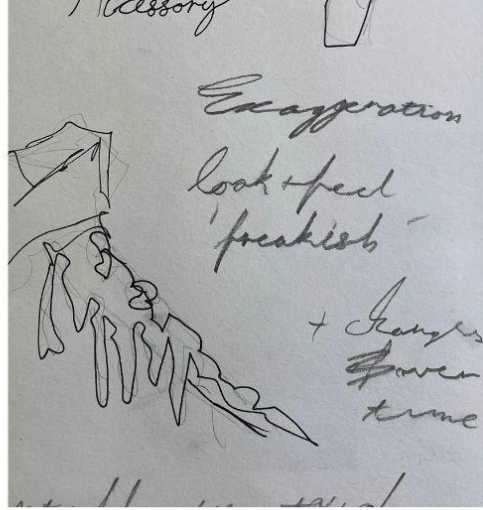 Accessory
Exaggeration
look + feel
'freakish'
+ Changes
over
time